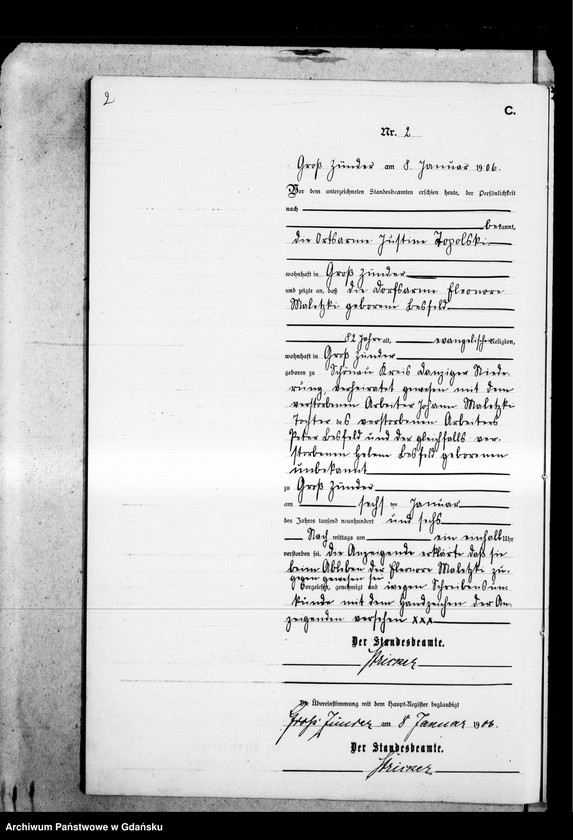 2
C.
Nr. 2
Groß Zünder am 8. Januar 1906.
Vor dem unterzeichneten Standesbeamten erschien heute, der Persönlichkeit
nach
bekannt,
die Ortsarme Justine Topolski
wohnhaft in Groß Zünder
und zeigte an, daß die Dorfsarme Eleonore
Maletzki geborene Lesfeld
82 Jahre alt, evangelischer Religion,
wohnhaft in Groß Zünder
geboren zu Schönau Kreis Danziger Niede-
rung, verheiratet gewesen mit dem
verstorbenen Arbeiter Johann Maletzki
Tochter des verstorbenen Arbeiters
Peter Lesfeld und der gleichfalls ver-
storbenen Helene Lesfeld geborenen
unbekannt
zu Groß Zünder
am sechsten Januar
des Jahres tausend neunhundert und sechs
Nach mittags um ein einhalb Uhr
verstorben sei. Die Anzeigende erklärte daß sie
beim Ableben der Eleonore Maletzki zu-
gegen gewesen sei
Vorgelesen, genehmigt und wegen Schreibensun-
kunde mit dem Handzeichen der An-
zeigenden versehen xxx
Der Standesbeamte.
Stricker
Die Übereinstimmung mit dem Haupt-Register beglaubigt
Groß Zünder am 8 Januar 1906.
Der Standesbeamte.
Stricker
Archiwum Państwowe w Gdańsku